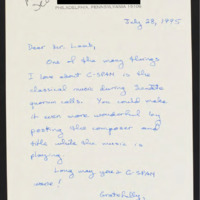 PHILADELPHIA, PENNSYLVANIA
July 28, 1995
Dear Mr. Lamb,
One of the many things
I love about C-SPAN is the
classical music during Senate
quorum calls. You could make
it even more wonderful by
posting the composer and
title while the music is
playing.
Long may year C-SPAN
wave!
Gratefully,